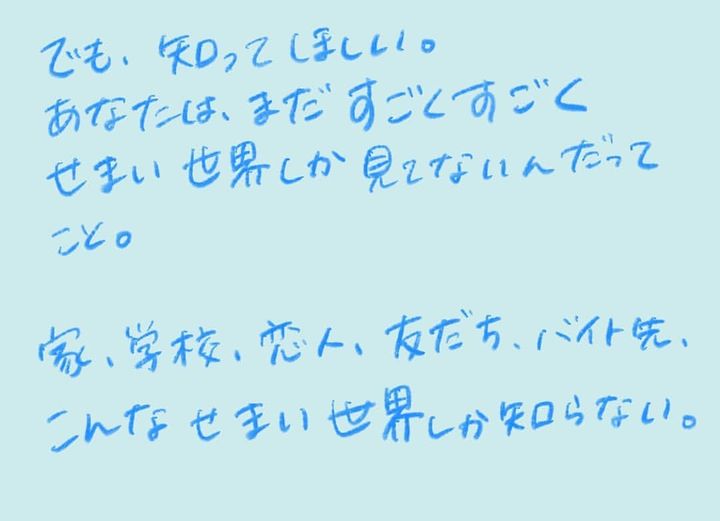 でも、知ってほしい。
あなたは、まだすごくすごく
せまい世界しか見てないんだって
こと。
家、学校、恋人、友だち、バイト先、
こんなせまい世界しか知らない。